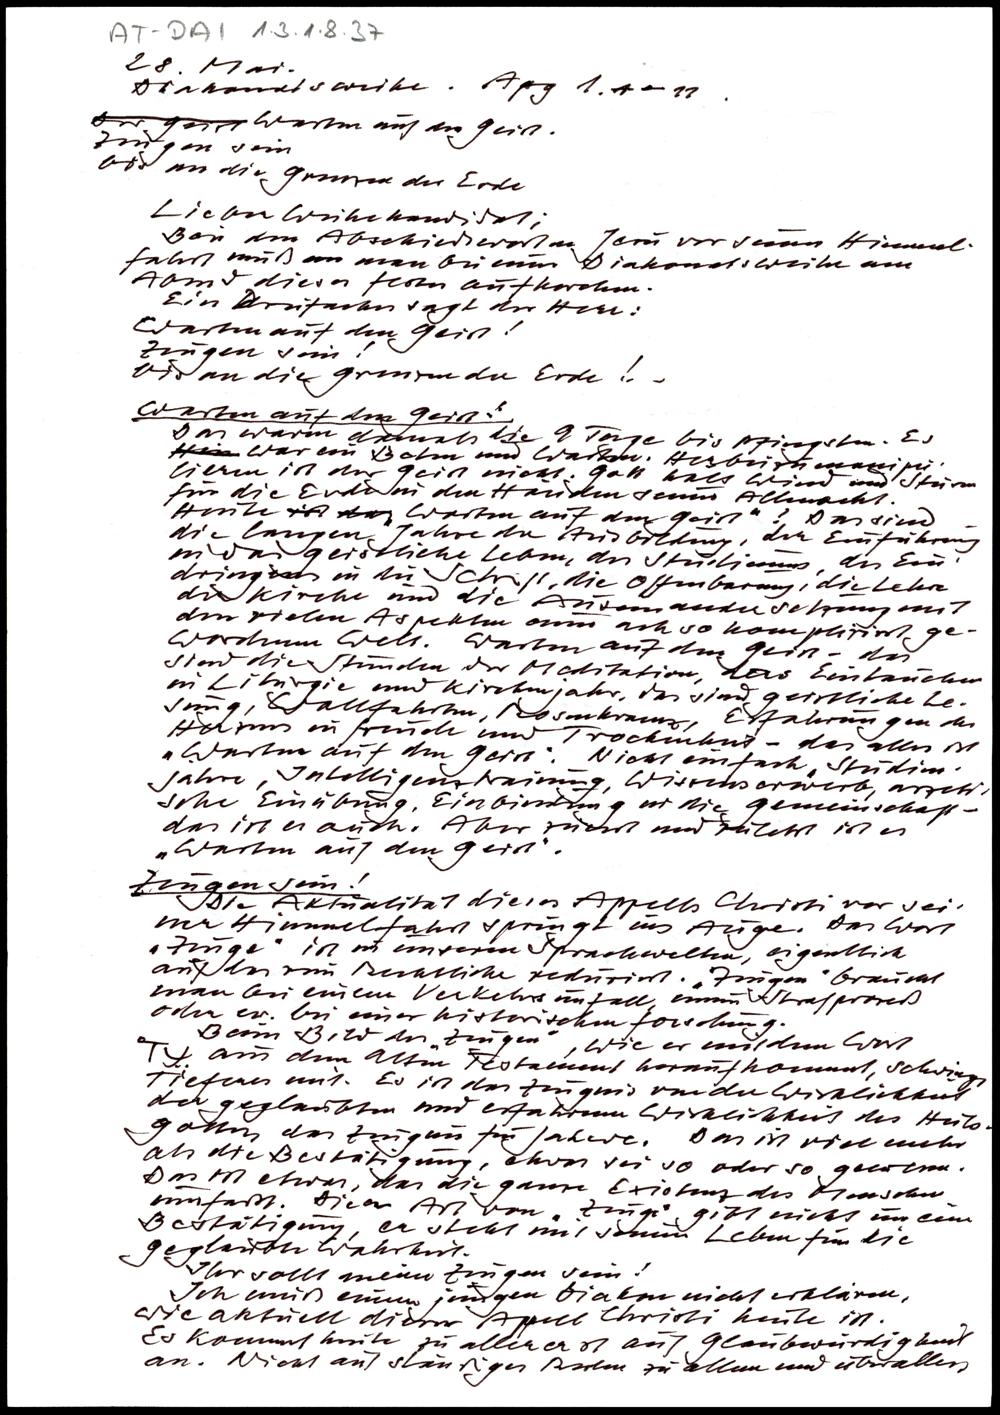 AT-DAI 1.3.1.8.37
28. Mai.
Diakonatsweihe. Apg 1. 4-11.
Der Geist Warten auf den Geist.
Zeugen sein
bis an die Grenzen der Erde
Lieber Weihekandidat,
Bei den Abschiedsworten Jesu vor seiner Himmel-
fahrt muß man bei einer Diakonatsweihe am
Abend dieses Festes aufhorchen.
Ein Dreifaches sagt der Herr:
Warten auf den Geist!
Zeugen sein!
bis an die Grenzen der Erde!
Warten auf den Geist!
Das waren damals die 9 Tage bis Pfingsten. Es
war ein Beten und Warten. Herbeizumanipu-
lieren ist der Geist nicht. Gott hält Wind und Sturm
für die Erde in den Händen seiner Allmacht.
Heute ist das "Warten auf den Geist"? Das sind
die langen Jahre der Ausbildung, der Einführung
in das geistliche Leben, des Studiums, des Ein-
dringens in die Schrift, die Offenbarung, die Lehre
der Kirche und die Auseinandersetzung mit
den vielen Aspekten einer ach so kompliziert ge-
wordenen Welt. Warten auf den Geist - das
sind die Stunden der Meditation, des Eintauchens
in Liturgie und Kirchenjahr, das sind geistliche Le-
sung, Wallfahrten, Rosenkranz, Erfahrungen des
Herzens in Freude und Trockenheit - das alles ist
"Warten auf den Geist". Nicht einfach "Studien-
jahre, Intelligenztraining, Wissenserwerb, aszeti-
sche Einübung, Einbindung in die Gemeinschaft -
das ist es auch. Aber zuerst und zuletzt ist es
"Warten auf den Geist".
Zeugen sein!
Die Aktualität dieses Appells Christi vor sei-
ner Himmelfahrt springt ins Auge. Das Wort
"Zeuge" ist in unseren Sprachwelten, eigentlich
auf das rein Rechtliche reduziert. "Zeugen" braucht
man bei einem Verkehrsunfall, einem Strafprozeß
oder ev. bei einer historischen Forschung.
Beim Bild des "Zeugen", wie er mit dem Wort
aus dem Alten Testament heraufkommt, schwingt
Tieferes mit. Es ist das Zeugnis von der Wirklichkeit
der geglaubten und erfahrenen Wirklichkeit des Heils-
gottes das Zeugnis für Jahwe. Das ist viel mehr
als die Bestätigung, etwas sei so oder so gewesen.
Das ist etwas, das die ganze Existenz des Menschen
umfaßt. Diese Art von "Zeuge" gibt nicht nur eine
Bestätigung, er steht mit seinem Leben für die
geglaubte Wahrheit.
Ihr sollt meine Zeugen sein!
Ich muß einem jungen Diakon nicht erklären,
wie aktuell dieser Appell Christi heute ist.
Es kommt heute zu allererst auf Glaubwürdigkeit
an. Nicht auf ständiges Reden zu allem und überallhin